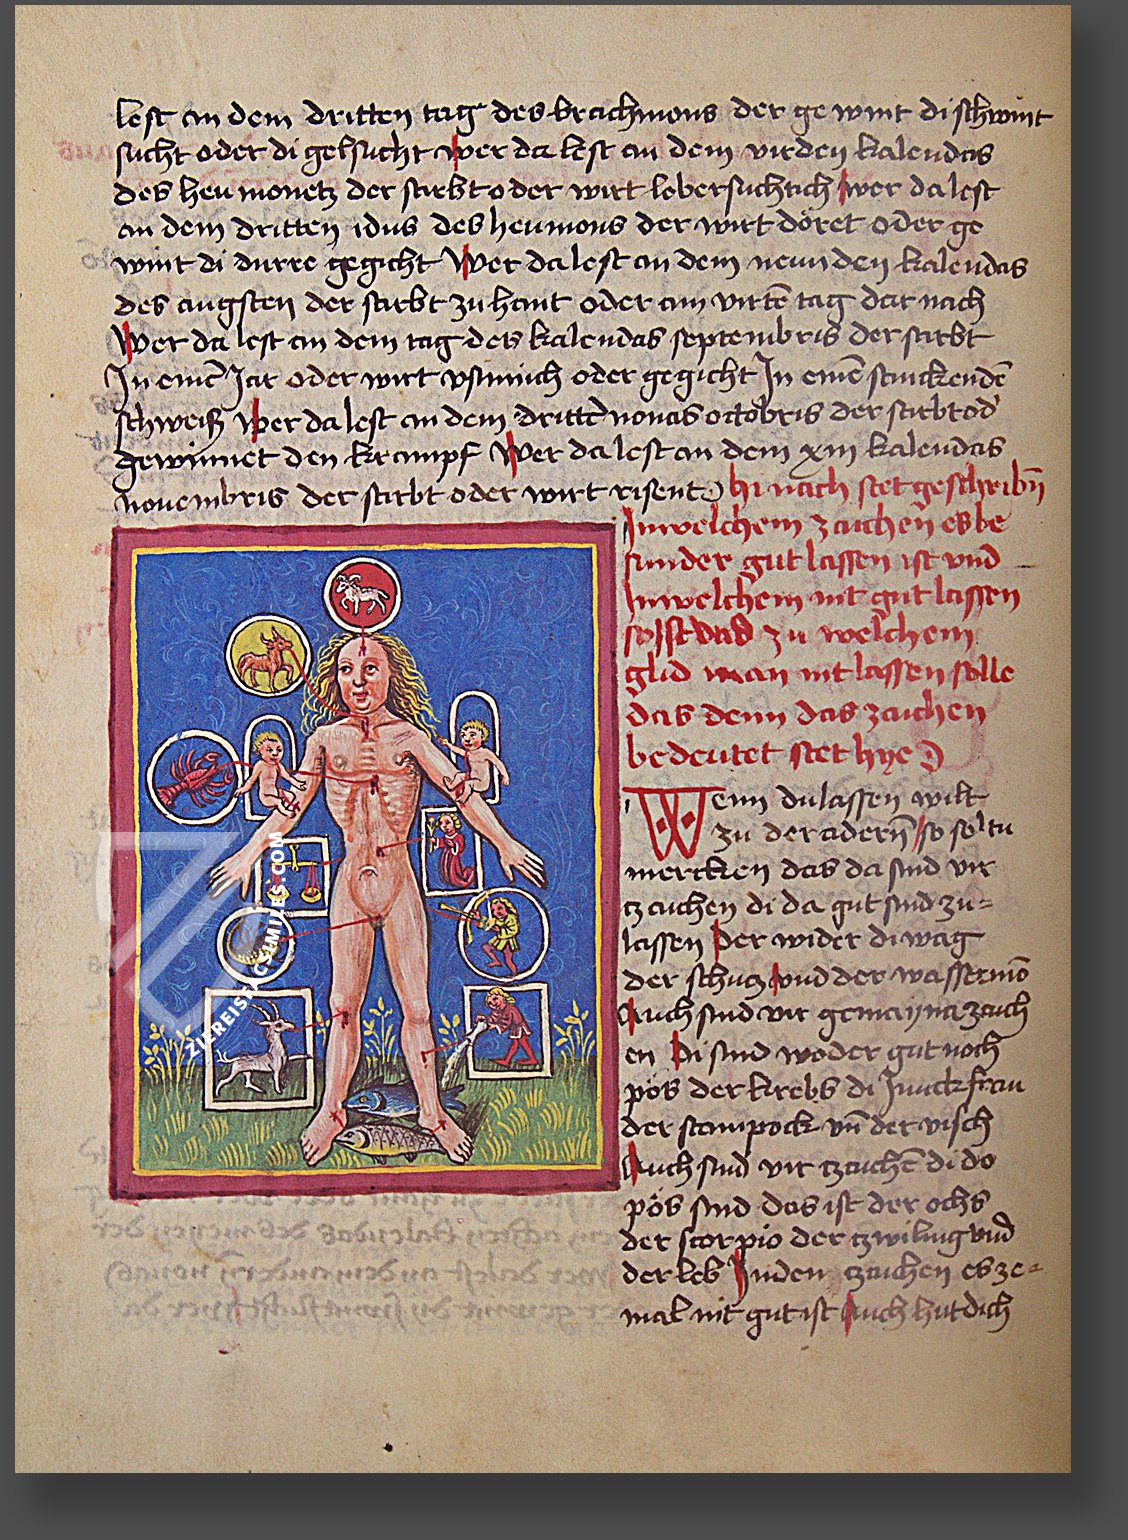 lest an dem dritten tag des brachmons der ge wint di schwint
sucht oder di gelsucht wer da lest an dem virden kalendas
des heu monetz der stirbt oder wirt lebersuchtich wer da lest
an dem dritten idus des heumons der wirt döret oder ge
wint di durre gegicht Wer da lest an dem neunden kalendas
des augsten der stirbt zu hant oder am virtē tag dar nach
Wer da lest an dem tag des kalendas septembris der stirbt
In einē Jar oder wirt oder gegicht In einē stinckendē
schweiß Wer da lest an dem drittē nonas octobris der stirbt od
gewinnet den krampf Wer da lest an dem xiii kalendas
nouembris der stirbt oder wirt risent hi nach stet geschribn̄
Inwelchem zaichen es be
sunder gut lassen ist vnd
Inwelchem nit gut lassen
sey vnd zu welchem
glid man nit lassen solle
das denn das zaichen
bedeutet stet hye
Wenn du lassen wilt
zu der adern̄ so soltu
mercken das da sind vir
tzaichen di da gut sind zu=
lassen Der wider di wag
der schutz vnd der wassermō
Auch sind vir gemayna zaich
en Di sind weder gut noch
pös der krebs di Junckfrau
der stainpock vn̄ der visch
Auch sind vir tzaichē di do
pös sind das ist der ochs
der scorpio der tzwiling vnd
der leb In den tzaichen es ze=
mal nit gut ist Auch hut dich
ZIEREIS FACSIMILES.COM